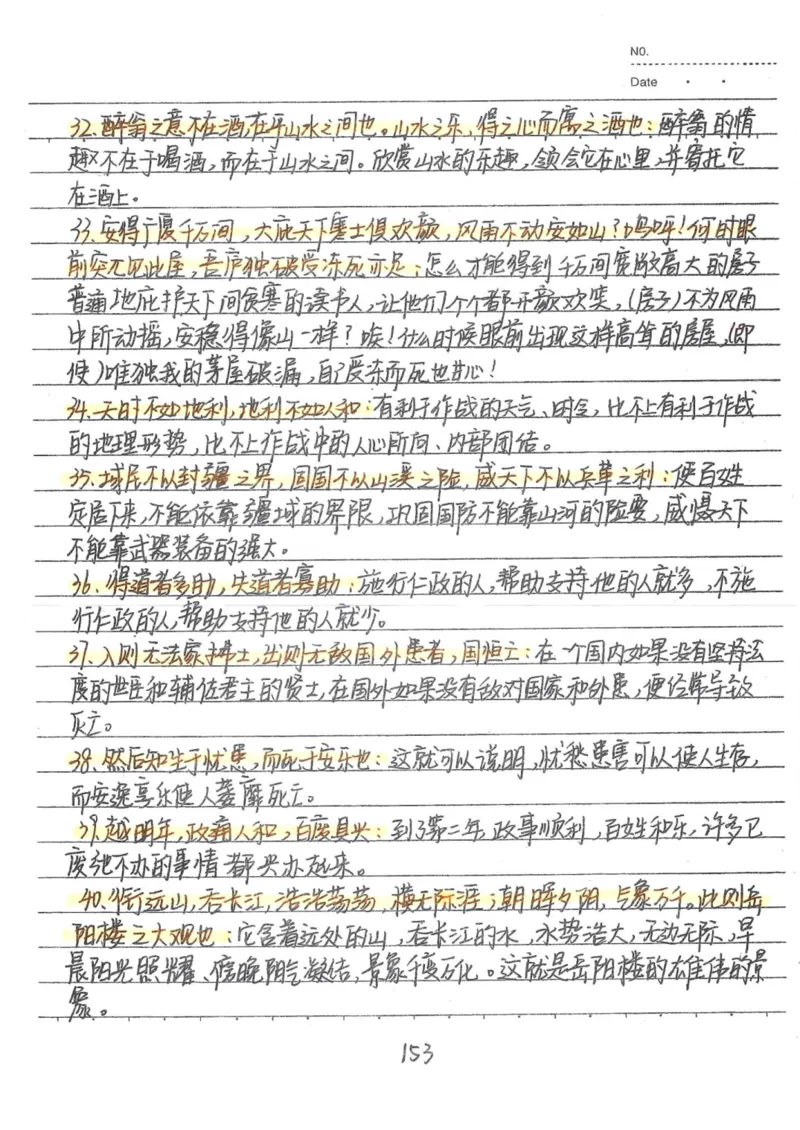 NO.
Date
32、醉翁之意不在酒,在乎山水之间也。山水之乐,得之心而寓之酒也:醉翁的情
趣不在于喝酒,而在于山水之间。欣赏山水的乐趣,领会它在心里,并寄托它
在酒上。
33、安得广厦千万间,大庇天下寒士俱欢颜,风雨不动安如山?呜呼!何时眼
前突兀见此屋,吾庐独破受冻死亦足:怎么才能得到千万间宽敞高大的房子
普遍地庇护天下间贫寒的读书人,让他们个个都开颜欢笑,(房子)不为风雨
中所动摇,安稳得像山一样?唉!什么时候眼前出现这样高耸的房屋,(即
使)唯独我的茅屋破漏,自己受冻而死也甘心!
34、天时不如地利,地利不如人和:有利于作战的天气、时令,比不上有利于作战
的地理形势,比不上作战中的人心所向、内部团结。
35、域民不以封疆之界,固国不以山溪之险,威天下不以兵革之利:使百姓
定居下来,不能依靠疆域的界限,巩固国防不能靠山河的险要,威慑天下
不能靠武器装备的强大。
36、得道者多助,失道者寡助:施行仁政的人,帮助支持他的人就多,不施
行仁政的人,帮助支持他的人就少。
37、入则无法家拂士,出则无敌国外患者,国恒亡:在一个国内如果没有坚持法
度的世臣和辅佐君主的贤士,在国外如果没有敌对国家和外患,便经常导致
灭亡。
38、然后知生于忧患,而死于安乐也:这就可以说明,忧愁患害可以使人生存,
而安逸享乐使人萎靡死亡。
39、越明年,政通人和,百废具兴:到了第二年,政事顺利,百姓和乐,许多已
废弛不办的事情都兴办起来。
40、衔远山,吞长江,浩浩荡荡,横无际涯;朝晖夕阴,气象万千。此则岳
阳楼之大观也:它含着远处的山,吞长江的水,水势浩大,无边无际,早
晨阳光照耀、傍晚阴气凝结,景象千变万化。这就是岳阳楼的雄伟的景
象。
153